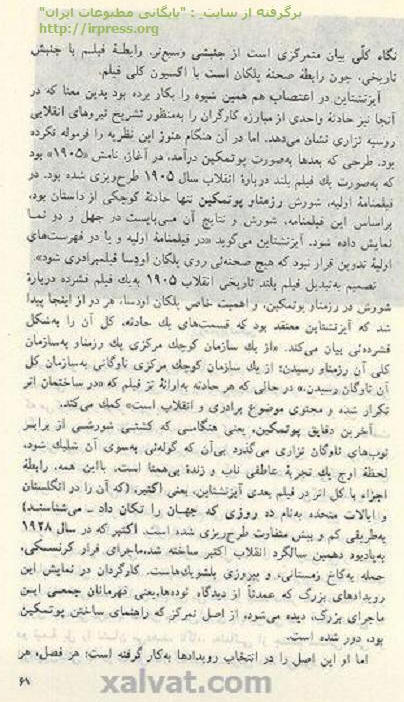 برگرفته از سایت : "بایگانی مطبوعات ایران"
http://irpress.org
نگاه کلّی بیان متمرکزی است از جنبشی وسیع‌تر، رابطهٔ فیلم با جنبش
تاریخی، چون رابطه صحنه پلکان است با اکسیون کلی فیلم.
آیزنشتاین در اعتصاب هم همین شیوه را بکار برده بود بدین معنا که در
آنجا نیز حادثهٔ واحدی از مبارزه کارگران را به‌منظور تشریح نیروهای انقلابی
روسیه تزاری نشان می‌دهد. اما در آن هنگام هنوز این نظریه را فرموله نکرده
بود. طرحی که بعدها به‌صورت پوتمکین درآمد، در آغاز، نامش «۱۹۰۵» بود
که به‌صورت یك فیلم بلند دربارهٔ انقلاب سال ۱۹۰۵ طرح‌ریزی شده بود. در
فیلمنامهٔ اولیه، شورش رزمناو پوتمکین تنها حادثهٔ کوچکی از داستان بود.
براساس این فیلمنامه، شورش و نتایج آن می‌بایست در چهل و دو نما
نمایش داده شود. آیزنشتاین می‌گوید «در فیلمنامهٔ اولیه و یا دو فهرست‌های
اولیهٔ تدوین قرار نبود که هیچ صحنه‌ئی روی پلکان اودسا فیلمبرداری شود».
تصمیم به‌تبدیل فیلم بلند تاریخی انقلاب ۱۹۰۵ به‌یك فیلم فشرده دربارهٔ
شورش در رزمناو پوتمکین، و اهمیت خاص پلکان اودسا، هر دو از اینجا پیدا
شد که آیزنشتاین معتقد بود که قسمت‌های یك حادثه، کل آن را به‌شکل
فشرده‌ئی بیان می‌کند. «از یك سازمان کوچك مرکزی یك رزمناو به‌سازمان
کلی آن رزمناو رسیدن؛ از یك سازمان کوچك مرکزی ناوگانی به‌سازمان کل
آن ناوگان رسیدن.» در حالی که هر حادثه به‌ارائهٔ تز فیلم که «در ساختمان اثر
تکرار شده و محتوی موضوع برادری و انقلاب است» کمك می‌کند.
آخرین دقایق پوتمکین، یعنی هنگامی که کشتی شورشی از برابر
توب‌های ناوگان تزاری می‌گذرد بی‌آن که گوله‌ئی به‌سوی آن شلیك شود،
لحظهٔ اوج یك تجربهٔ عاطفی ناب و زندهٔ بی‌همتا است. بااین همه، رابطهٔ
اجزاء با کل اثر در فیلم بعدی آیزنشتاین، یعنی اکتبر، (که آن را در انگلستان
و ایالات متحده به‌نام ده روزی که جهان را تکان داد ـ می‌شناسند)
به‌طریقی کم و بیش متفاوت طرح‌ریزی شده است. اکتبر که در سال ۱۹۲۸
به‌یادبود دهمین سالگرد انقلاب اکتبر ساخته شد، ماجرای فرار کرنسکی،
حمله به‌کاخ زمستانی، و پیروزی بلشویك‌هاست. کارگردان در نمایش این
رویدادهای بزرگ که عمدتاً از دیدگاه توده‌ها، یعنی قهرمانان جمعی این
ماجرای بزرگ، دیده می‌شود، از اصل تمرکز که راهنمای ساختن پوتمکین
بود، دور شده است.
اما او این اصل را در انتخاب رویدادها به‌کار گرفته است: هر فصل، هر
۶۹
xalvat.com